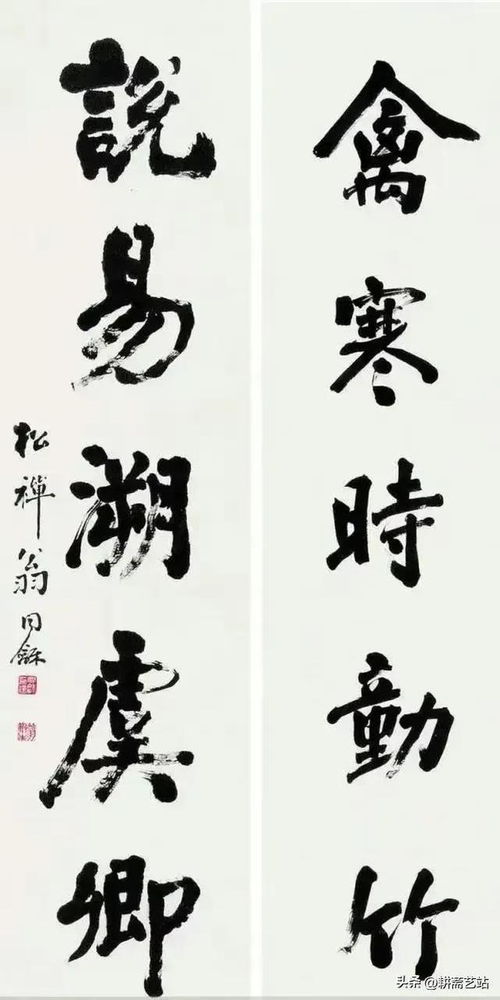 禽寒時動竹
說易溯虞卿
松禪翁同龢
头条 @耕斋艺站